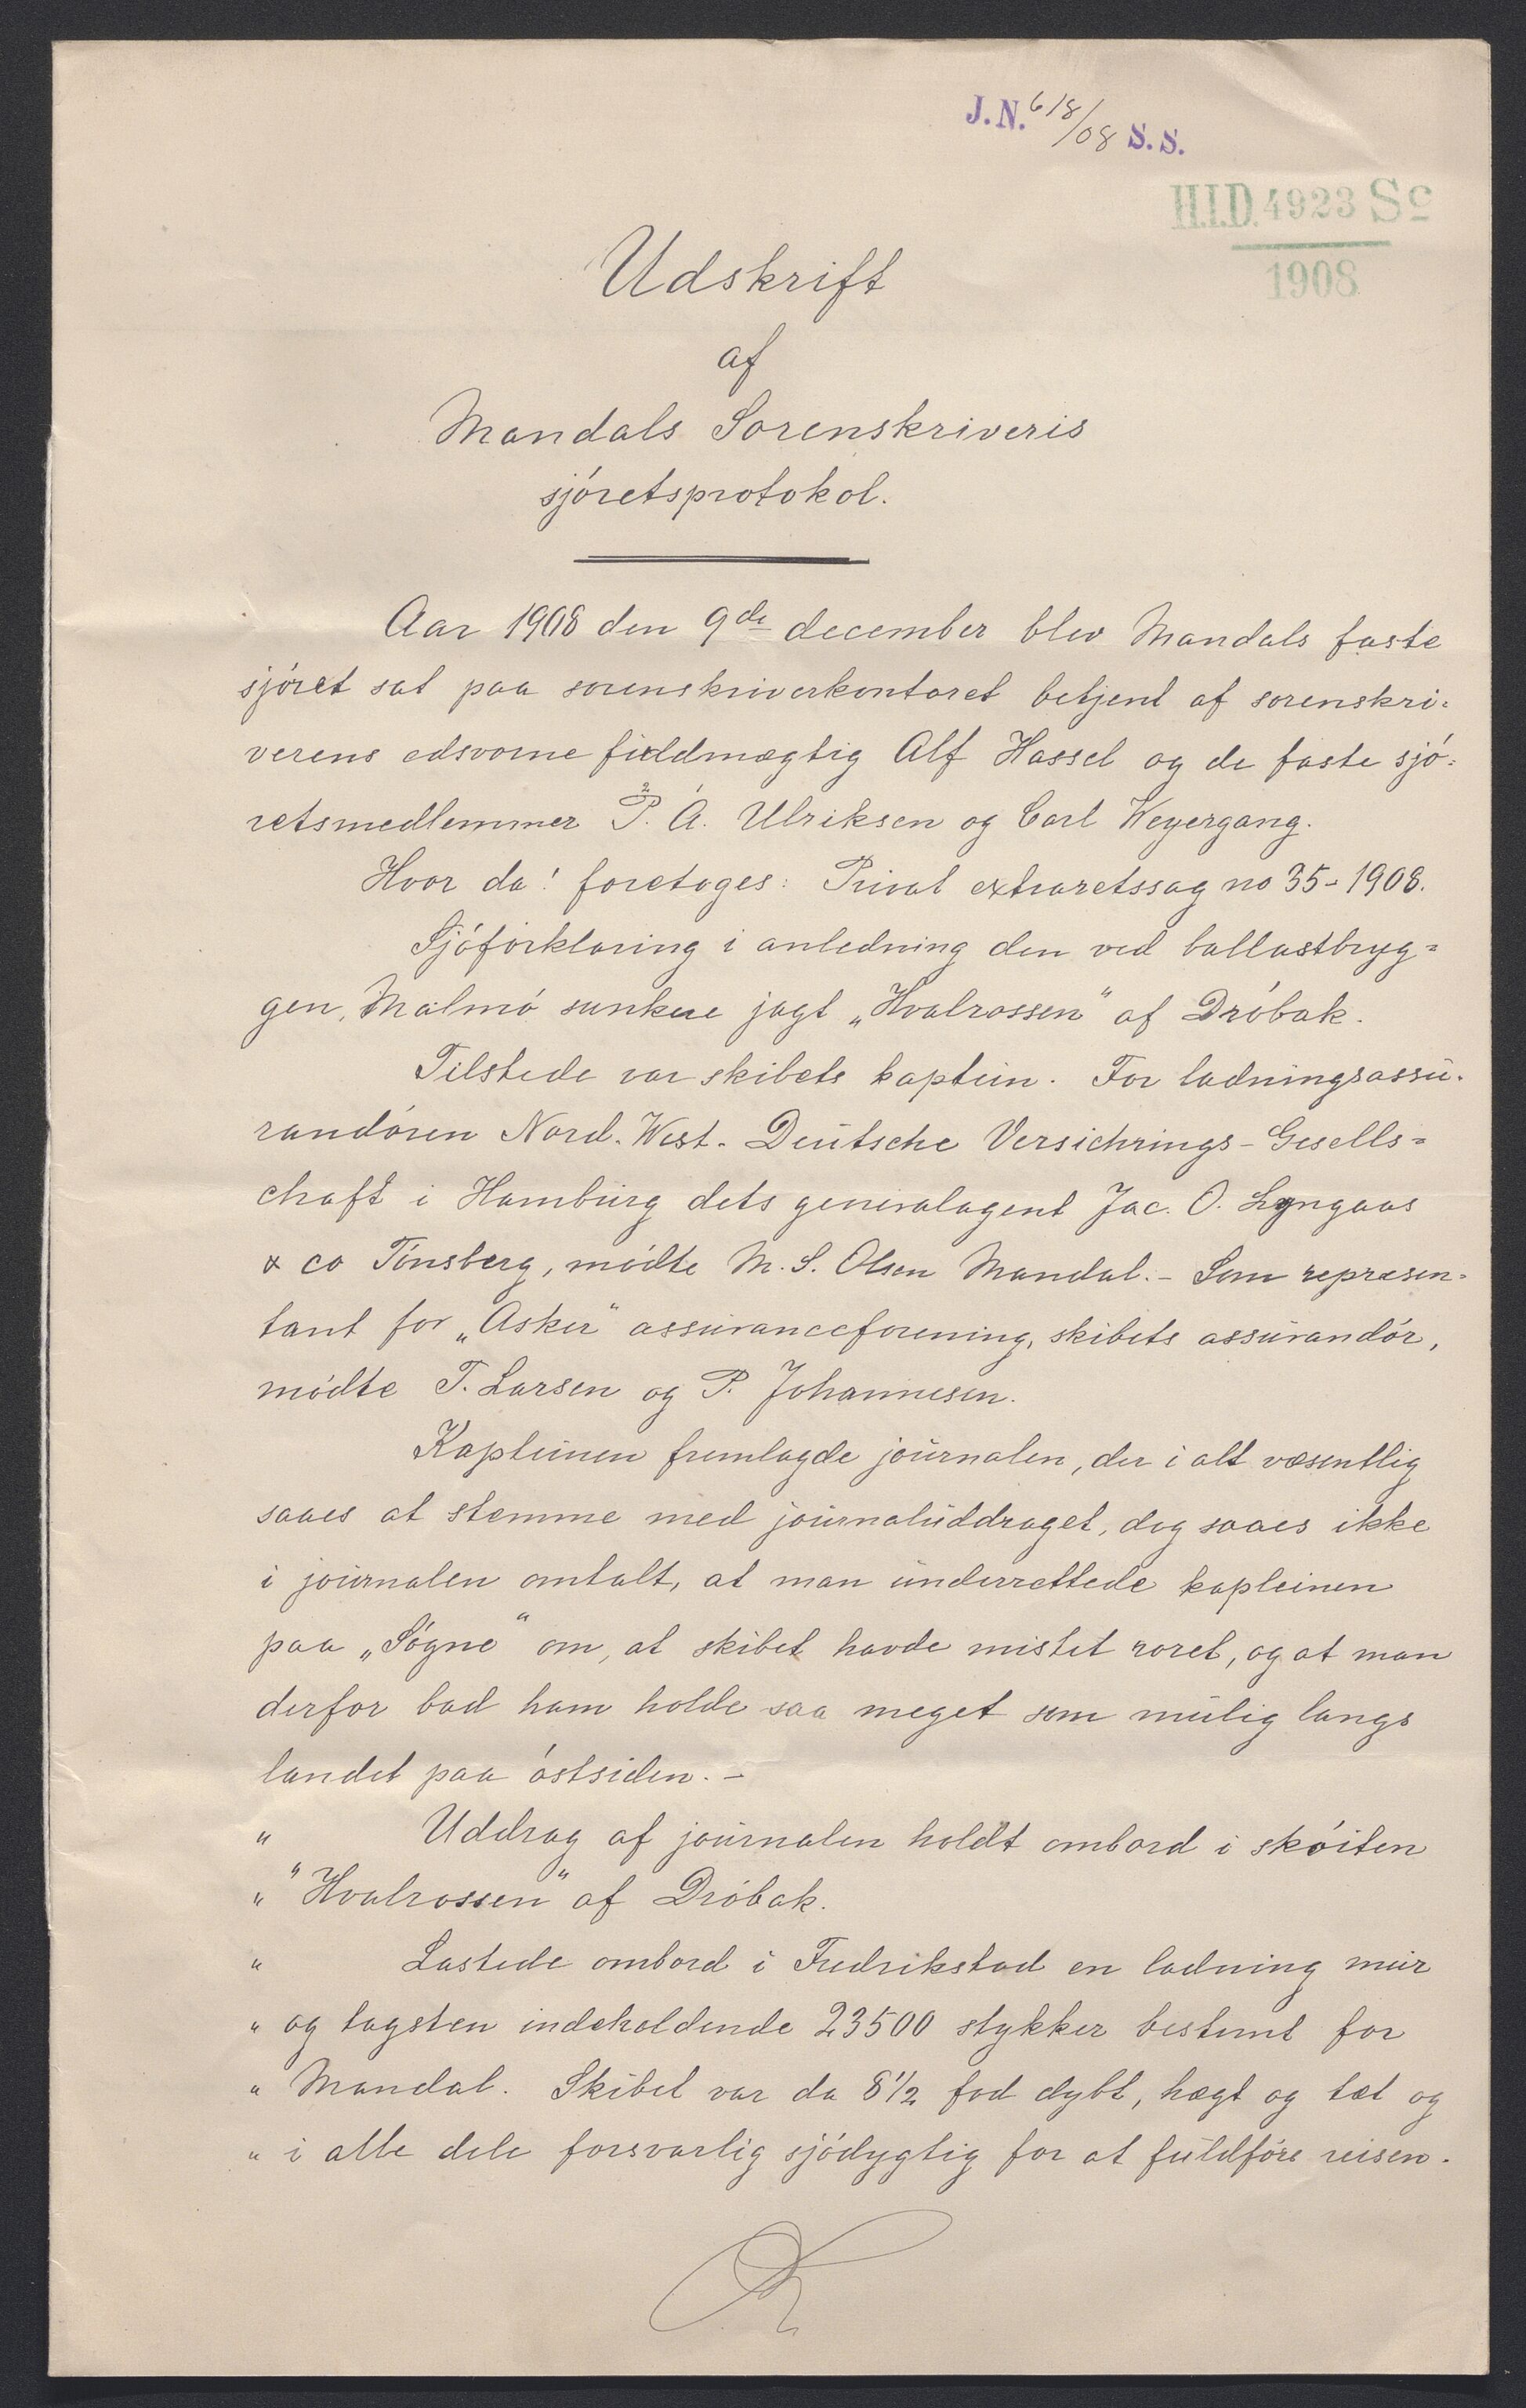 J.N. 618/08 S.S.
H.I.D. 4923 Sc
1908
Udskrift
af
Mandals Sorenskriveris
sjöretsprotokol.
Aar 1908 den 9de december blev Mandals faste
sjöret sat paa sorenskriverkontoret betjent af sorenskri-
verens edsvorne fuldmægtig Alf Hassel og de faste sjö-
retsmedlemmer P. A. Ulriksen og Carl Weyergang.
Hvor da! foretoges: Privat extraretssag no 35-1908.
Sjöforklaring i anledning den ved ballastbryg=
gen, Malmö sunkne jagt „Hvalrossen" af Dröbak.
Tilstede var skibets kaptein. For ladningsassu-
randören Nord-West-Deutsche Versichrings-Gesells=
chaft i Hamburg dets generalagent Jac. O. Lyngaas
& co Tönsberg, mödte M. S. Olsen Mandal. - Som repræsen-
tant for „Asker" assuranceforening, skibets assurandör,
mödte T. Larsen og P. Johannesen.
Kapteinen fremlagde journalen, der i alt væsentlig
saaes at stemme med journaluddraget, dog saaes ikke
i journalen omtalt, at man underrettede kapteinen
paa „Sögne" om, at skibet havde mistet roret, og at man
derfor bad ham holde saa meget som mulig langs
landet paa östsiden. -
" Uddrag af journalen holdt ombord i sköiten
" "Hvalrossen" af Dröbak.
" Lastede ombord i Fredrikstad en ladning mur
" og tagsten indeholdende 23500 stykker bestemt for
" Mandal. Skibet var da 8 1/2 fod dybt, hægt og tæt og
" i alle dele forsvarlig sjödygtig for at fuldföre reisen.